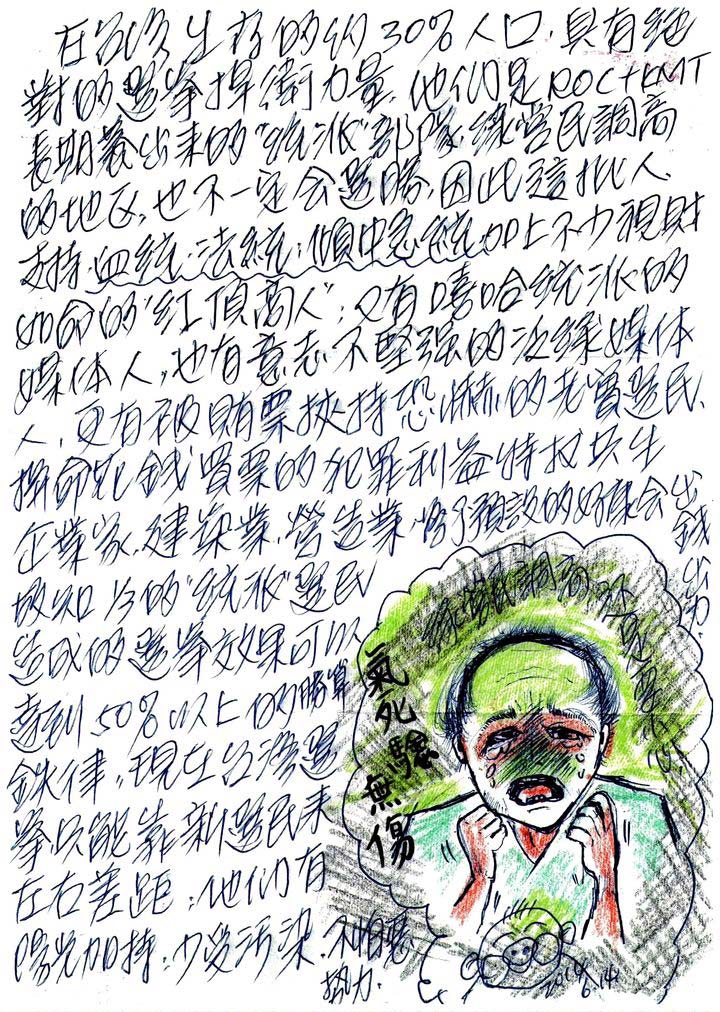 在台灣生存的約30%人口,具有絕
對的選舉捍衛力量.他们是ROC+KMT
長期養出來的"統派"部隊.綠營民調高
的地区,也不一定会選勝,因此這批人
支持:血統.法統.傾中急統加上不少視財
如命的"紅頂商人",又有嘻哈統派的
媒体人,也有意志不堅强的泛綠媒体
人.更有被賄票挾持恐嚇的老實選民.
掙命死錢買票的犯罪利益特权共生
企業家.建築業.營造業.為了預設的好康会出錢出力.
故知藍的"統派"選民
造成的選舉效果可以
達到50%以上的勝算
鉄律,現在台灣選
舉只能靠新選民來
左右差距.他们有
陽光加持.少受污染.不怕惡
勢力.
綠營民調高
氣死驗無傷
2019
6.14